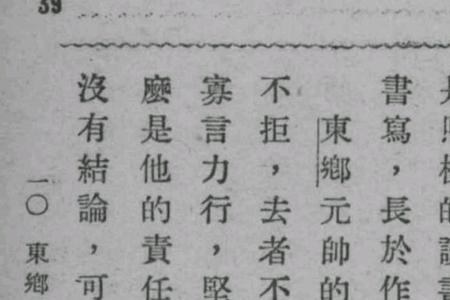 39
書寫，長於作
東鄉元帥的
不拒，去者不
寡言力行，堅
麼是他的責任
沒有結論，可
一〇 東鄉